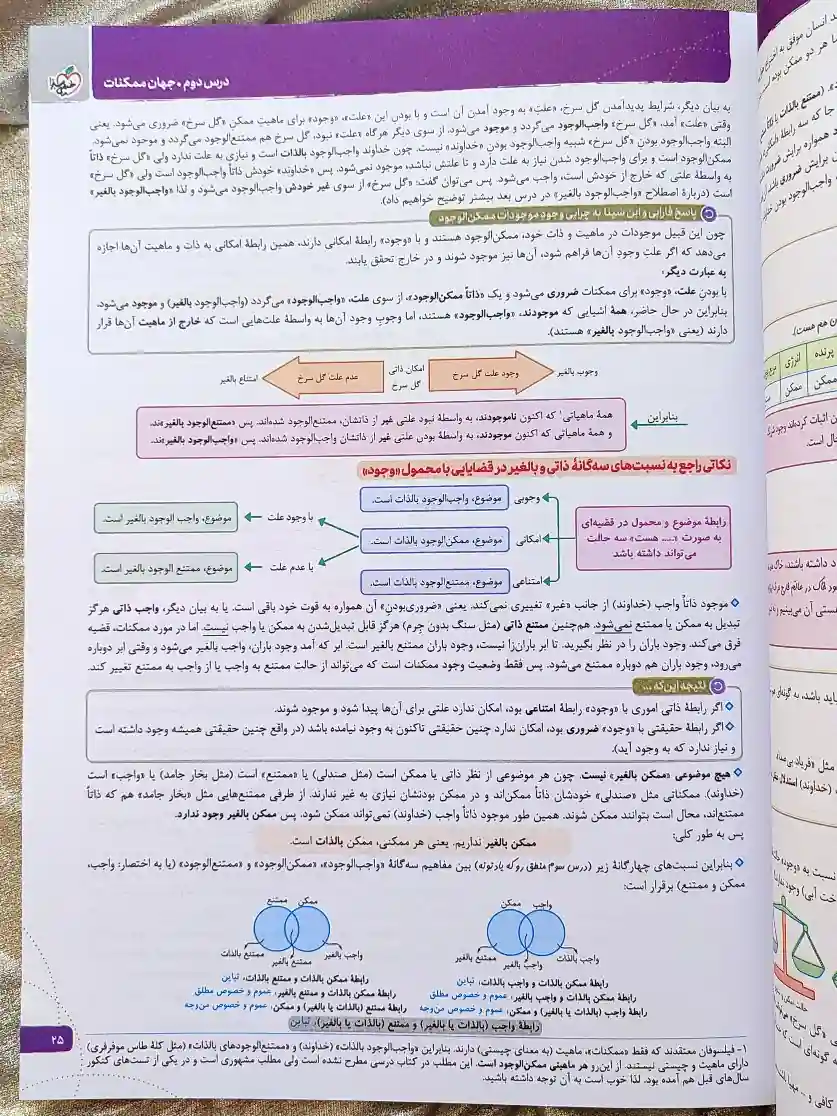 درس دوم • جهان ممکنات
به بیان دیگر، شرایط پدیدآمدن گل سرخ، «علتِ» به وجود آمدن آن است و با بودن این «علت»، «وجود» برای ماهیتِ ممکنِ «گل سرخ» ضروری می‌شود. یعنی
وقتی «علت» آمد، «گل سرخ» واجب‌الوجود می‌گردد و موجود می‌شود. از سوی دیگر هرگاه «علت» نبود، گل سرخ هم ممتنع‌الوجود می‌گردد و موجود نمی‌شود.
البته واجب‌الوجود بودنِ «گل سرخ» شبیه واجب‌الوجود بودن «خداوند» نیست. چون خداوند واجب‌الوجود بالذات است و نیازی به علت ندارد ولی «گل سرخ» ذاتاً
ممکن‌الوجود است و برای واجب‌الوجود شدن نیاز به علت دارد و تا علتش نباشد، موجود نمی‌شود. پس «خداوند» خودش ذاتاً واجب‌الوجود است ولی «گل سرخ»
به واسطهٔ علتی که خارج از خودش است، واجب می‌شود. پس می‌توان گفت: «گل سرخ» از سوی غیر خودش واجب‌الوجود می‌شود و لذا «واجب‌الوجود بالغیر»
است (دربارهٔ اصطلاح «واجب‌الوجود بالغیر» در درس بعد بیشتر توضیح خواهیم داد).
پاسخ فارابی و ابن سینا به چرایی وجود موجودات ممکن‌الوجود
چون این قبیل موجودات در ماهیت و ذات خود، ممکن‌الوجود هستند و با «وجود» رابطهٔ امکانی دارند، همین رابطهٔ امکانی به ذات و ماهیت آن‌ها اجازه
می‌دهد که اگر علتِ وجودِ آن‌ها فراهم شود، آن‌ها نیز موجود شوند و در خارج تحقق یابند.
به عبارت دیگر:
با بودنِ علت، «وجود» برای ممکنات ضروری می‌شود و یک «ذاتاً ممکن‌الوجود»، از سوی علت، «واجب‌الوجود» می‌گردد (واجب‌الوجود بالغیر) و موجود می‌شود.
بنابراین در حال حاضر، همهٔ اشیایی که موجودند، «واجب‌الوجود» هستند، اما وجوبِ وجود آن‌ها به واسطهٔ علت‌هایی است که خارج از ماهیت آن‌ها قرار
دارند (یعنی «واجب‌الوجود بالغیر» هستند).
وجوب بالغیر
وجود علت گل سرخ
امکان ذاتی
گل سرخ
عدم علت گل سرخ
امتناع بالغیر
بنابراین
همهٔ ماهیاتی۱ که اکنون ناموجودند، به واسطهٔ نبود علتی غیر از ذاتشان، ممتنع‌الوجود شده‌اند. پس «ممتنع‌الوجود بالغیر»ند.
و همهٔ ماهیاتی که اکنون موجودند، به واسطهٔ بودن علتی غیر از ذاتشان واجب‌الوجود شده‌اند. پس «واجب‌الوجود بالغیر»ند.
نکاتی راجع به نسبت‌های سه‌گانهٔ ذاتی و بالغیر در قضایایی با محمول «وجود»
رابطهٔ موضوع و محمول در قضیه‌ای
به صورت «..... هست» سه حالت
می‌تواند داشته باشد
وجوبی
موضوع، واجب‌الوجود بالذات است.
امکانی
موضوع، ممکن‌الوجود بالذات است.
امتناعی
موضوع، ممتنع‌الوجود بالذات است.
با وجود علت
موضوع، واجب الوجود بالغیر است.
با عدم علت
موضوع، ممتنع الوجود بالغیر است.
موجود ذاتاً واجب (خداوند) از جانب «غیر» تغییری نمی‌کند. یعنی «ضروری‌بودنِ» آن همواره به قوت خود باقی است. یا به بیان دیگر، واجب ذاتی هرگز
تبدیل به ممکن یا ممتنع نمی‌شود. هم‌چنین ممتنع ذاتی (مثل سنگ بدون جِرم) هرگز قابل تبدیل‌شدن به ممکن یا واجب نیست. اما در مورد ممکنات، قضیه
فرق می‌کند. وجود باران را در نظر بگیرید. تا ابر باران‌زا نیست، وجود باران ممتنع بالغیر است. ابر که آمد وجود باران، واجب بالغیر می‌شود و وقتی ابر دوباره
می‌رود، وجود باران هم دوباره ممتنع می‌شود. پس فقط وضعیت وجود ممکنات است که می‌تواند از حالت ممتنع به واجب یا از واجب به ممتنع تغییر کند.
نتیجه این‌که ...
اگر رابطهٔ ذاتی اموری با «وجود» رابطهٔ امتناعی بود، امکان ندارد علتی برای آن‌ها پیدا شود و موجود شوند.
اگر رابطهٔ حقیقتی با «وجود» ضروری بود، امکان ندارد چنین حقیقتی تاکنون به وجود نیامده باشد (در واقع چنین حقیقتی همیشه وجود داشته است
و نیاز ندارد که به وجود آید).
هیچ موضوعی «ممکن بالغیر» نیست. چون هر موضوعی از نظر ذاتی یا ممکن است (مثل صندلی) یا «ممتنع» است (مثل بخار جامد) یا «واجب» است
(خداوند). ممکناتی مثل «صندلی» خودشان ذاتاً ممکن‌اند و در ممکن بودنشان نیازی به غیر ندارند. از طرفی ممتنع‌هایی مثل «بخار جامد» هم که ذاتاً
ممتنع‌اند، محال است بتوانند ممکن شوند. همین طور موجود ذاتاً واجب (خداوند) نمی‌تواند ممکن شود. پس ممکن بالغیر وجود ندارد.
پس به طور کلی:
ممکن بالغیر نداریم. یعنی هر ممکنی، ممکن بالذات است.
بنابراین نسبت‌های چهارگانهٔ زیر (درس سوم منطق رو که یادتونه) بین مفاهیم سه‌گانهٔ «واجب‌الوجود»، «ممکن‌الوجود» و «ممتنع‌الوجود» (یا به اختصار: واجب،
ممکن و ممتنع) برقرار است:
واجب
ممکن
واجب بالذات
واجب بالغیر
ممتنع بالغیر
رابطهٔ ممکن بالذات و واجب بالذات، تباین
رابطهٔ ممکن بالذات و واجب بالغیر، عموم و خصوص مطلق
رابطهٔ واجب (بالذات یا بالغیر) و ممکن، عموم و خصوص من‌وجه
ممکن
ممتنع
واجب بالغیر
ممتنع بالغیر
ممتنع بالذات
رابطهٔ ممکن بالذات و ممتنع بالذات، تباین
رابطهٔ ممکن بالذات و ممتنع بالغیر، عموم و خصوص مطلق
رابطهٔ ممتنع (بالذات یا بالغیر) و ممکن، عموم و خصوص من‌وجه
رابطهٔ واجب (بالذات یا بالغیر) و ممتنع (بالذات یا بالغیر)، تباین
۱- فیلسوفان معتقدند که فقط «ممکنات»، ماهیت (به معنای چیستی) دارند. بنابراین «واجب‌الوجود بالذات» (خداوند) و «ممتنع‌الوجودهای بالذات» (مثل کلهٔ طاس موفرفری)
دارای ماهیت و چیستی نیستند. از این‌رو هر ماهیتی ممکن‌الوجود است. این مطلب در کتاب درسی مطرح نشده است ولی مطلب مشهوری است و در یکی از تست‌های کنکور
سال‌های قبل هم آمده بود. لذا خوب است به آن توجه داشته باشید.
۲۵